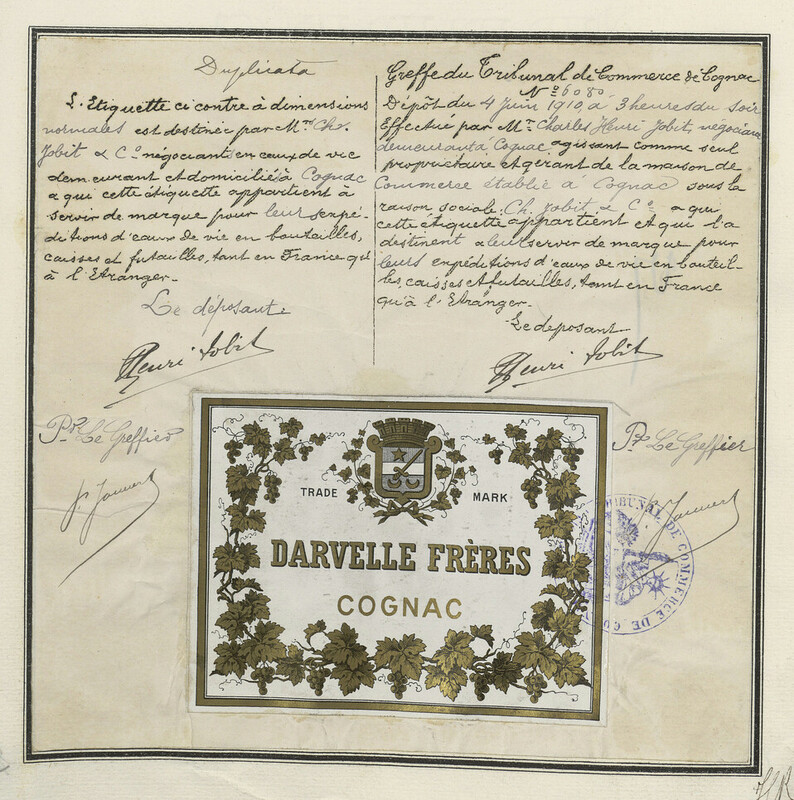 Duplicata
L'Etiquette ci contre à dimensions
normales est destinée par Mrs Ch.
Jobit & Co négociants en eaux de vie
demeurant et domiciliés à Cognac
a qui cette étiquette appartient à
servir de marque pour leur s expé-
ditions d'eaux de vie en bouteilles,
caisses et futailles, tant en France qu'
à l'Etranger.
Le déposant
Henri Jobit
Pr Le Greffier
Greffe du Tribunal de Commerce de Cognac
No 6080
Dépôt du 4 Juin 1910, à 3 heures du soir
Effectué par Mr Charles Henri Jobit, négociant
demeurant à Cognac agissant comme seul
propriétaire et gérant de la maison de
Commerce établie à Cognac sous la
raison sociale: Ch. Jobit & Co a qui
cette étiquette appartient et qui l'a
destinent a leur servir de marque pour
leurs expéditions d'eaux de vie en bouteil-
les, caisses et futailles, tant en France
qu'à l'Etranger.
Le déposant
Henri Jobit
Pr Le Greffier
TRADE MARK
DARVELLE FRÈRES
COGNAC
TRIBUNAL DE COMMERCE DE